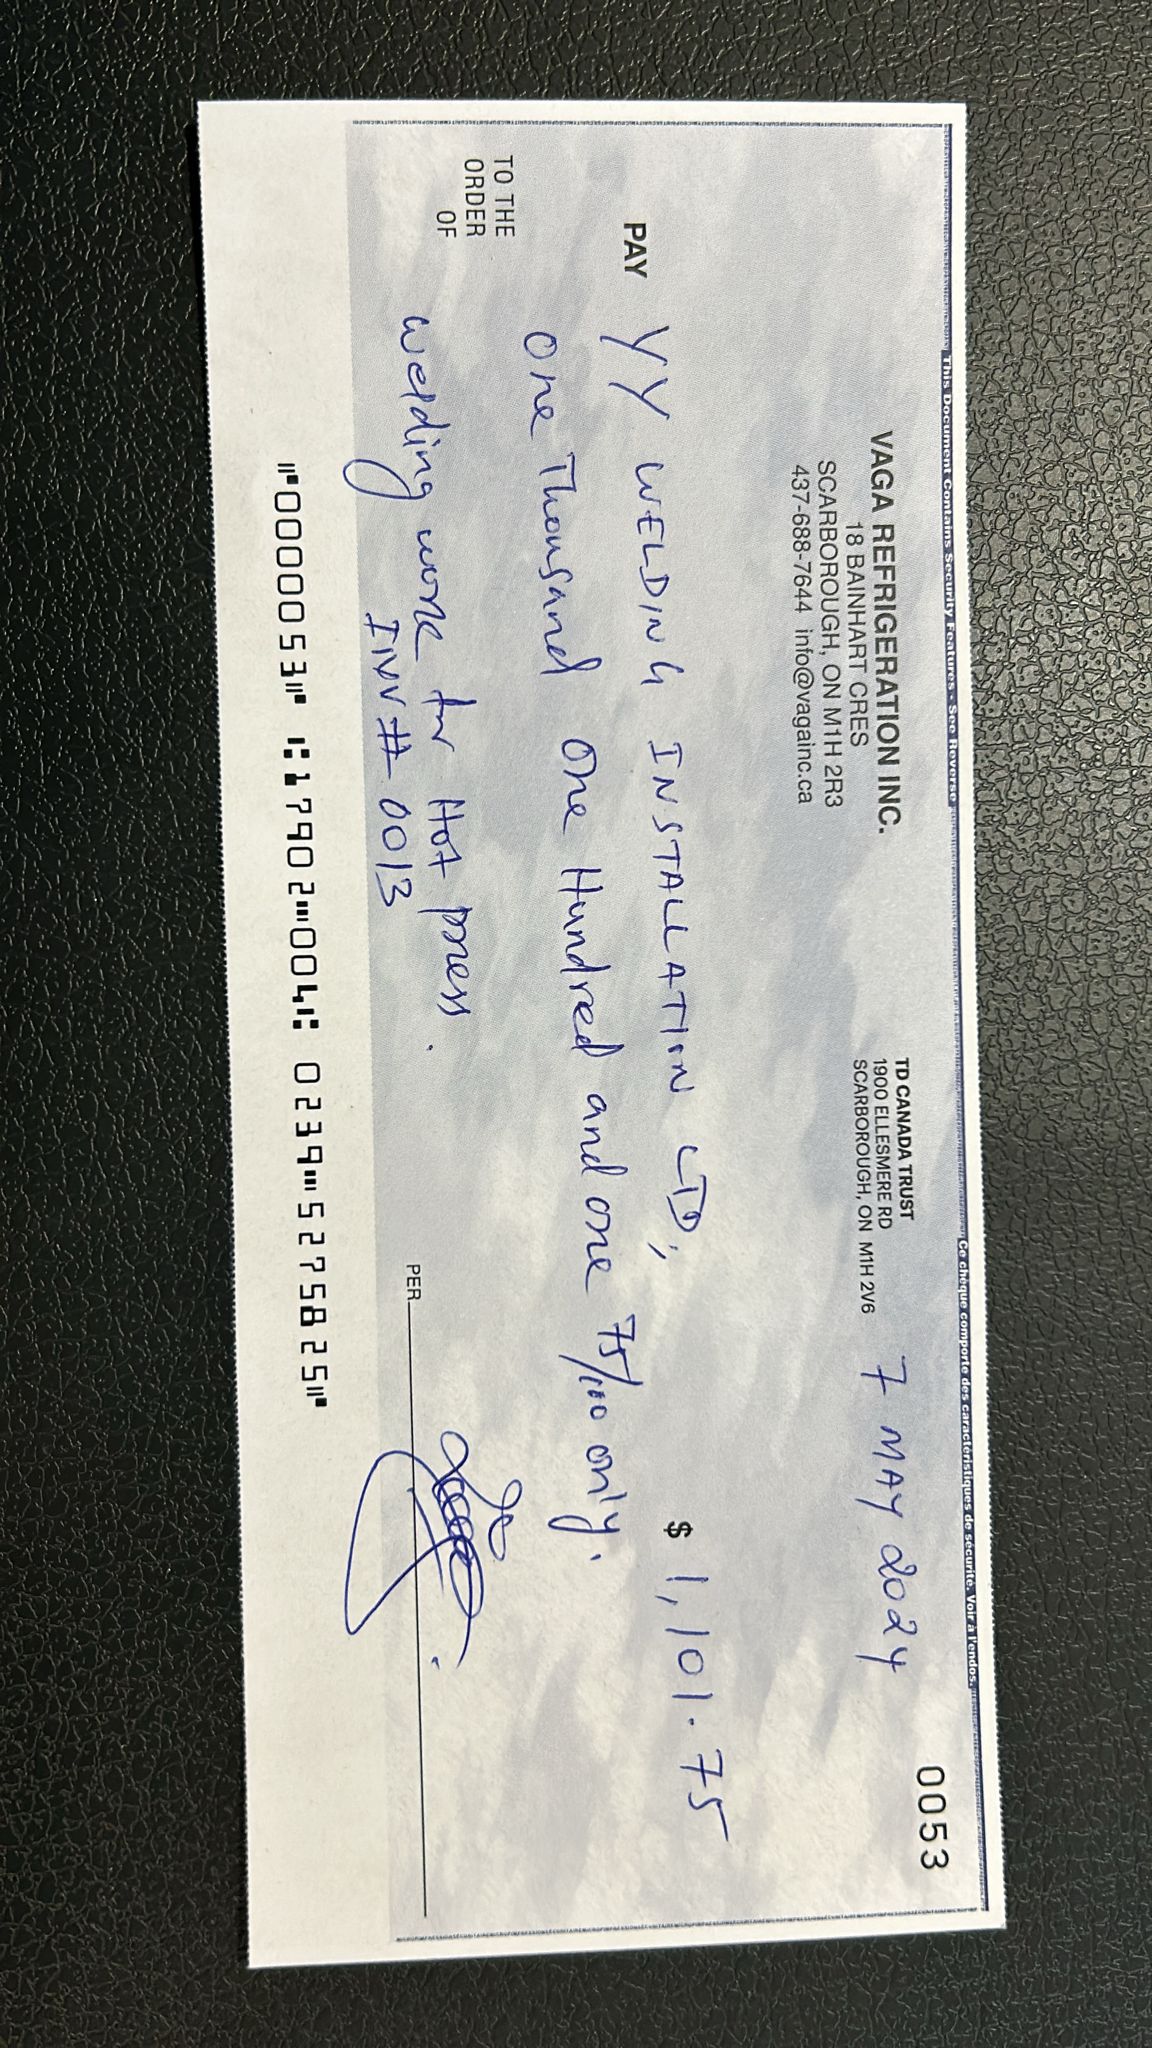 This Document Contains Security Features - See Reverse
Ce chèque comporte des caractéristiques de sécurité. Voir à l'endos.
0053
VAGA REFRIGERATION INC.
18 BAINHART CRES
SCARBOROUGH, ON M1H 2R3
437-688-7644 info@vagainc.ca
TD CANADA TRUST
1900 ELLESMERE RD
SCARBOROUGH, ON M1H 2V6
7 MAY 2024
PAY YY WELDING INSTALLATION LTD; $ 1,101.75
One Thousand One Hundred and one 75/100 only.
TO THE
ORDER
OF
welding work for Hot press.
INV# 0013
PER
⑈000053⑈ ⑆17902⑉004⑆ 0239⑉5275825⑈